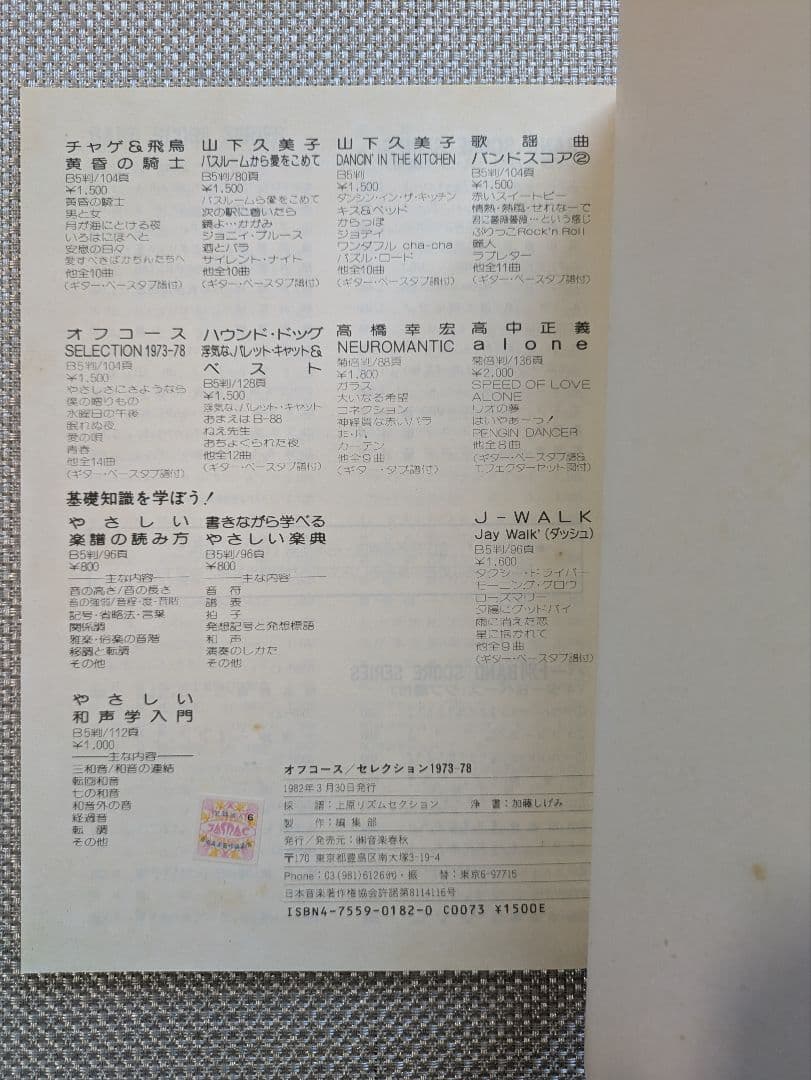 チャゲ&飛鳥
黄昏の騎士
B5判/104頁
¥1,500
黄昏の騎士
男と女
月が海にとける夜
いろはにほへと
安息の日々
愛すべきばかちんたちへ
他全10曲
(ギター・ベースタブ譜付)
山下久美子
バスルームから愛をこめて
B5判/80頁
¥1,500
バスルームら愛をこめて
次の駅に着いたら
鏡よ…かがみ
ジョニイ・ブルース
酒とバラ
サイレント・ナイト
他全10曲
(ギター・ベースタブ譜付)
山下久美子
DANCN' IN THE KITCHEN
B5判
¥1,500
ダンシン・イン・ザ・キッチン
キス&ベッド
からっぽ
ジョディ
ワンダフル cha-cha
パズル・ロード
他全10曲
(ギター・ベースタブ譜付)
歌謡曲
バンドスコア②
B5判/104頁
¥1,500
赤いスイートピー
情熱・熱風・せれなーで
君に薔薇薔薇…という感じ
ぶりっこRock'n Roll
麗人
ラブレター
他全11曲
(ギター・ベースタブ譜付)
オフコース
SELECTION 1973-78
B5判/104頁
¥1,500
やさしさにさようなら
僕の贈りもの
水曜日の午後
眠れぬ夜
愛の唄
青春
他全14曲
(ギター・ベースタブ譜付)
ハウンド・ドッグ
浮気な、バレット・キャット&
ベスト
B5判/128頁
¥1,500
浮気な、バレット・キャット
おまえはB-88
ねえ先生
おちょくられた夜
他全12曲
(ギター・ベースタブ譜付)
高橋幸宏
NEUROMANTIC
菊倍判/88頁
¥1,800
ガラス
大いなる希望
コネクション
神経質な赤いバラ
非・凡
カーテン
他全9曲
(ギター・タブ譜付)
高中正義
alone
菊倍判/136頁
¥2,000
SPEED OF LOVE
ALONE
リオの夢
はいやあ〜っ!
PENGIN DANCER
他全8曲
(ギター・ベースタブ譜&
エフェクターセット図付)
基礎知識を学ぼう!
やさしい
楽譜の読み方
B5判/96頁
¥800
主な内容
音の高さ/音の長さ
音の強弱/音程・度・音階
記号・省略法・言葉
関係調
雅楽・俗楽の音階
移調と転調
その他
書きながら学べる
やさしい楽典
B5判/96頁
¥800
主な内容
音符
譜表
拍子
発想記号と発想標語
和声
演奏のしかた
その他
J-WALK
Jay Walk' (ダッシュ)
B5判/96頁
¥1,600
タクシー・ドライバー
モーニング・グロウ
ローズマリー
夕陽にグッドバイ
雨に消えた恋
星に抱かれて
他全9曲
(ギター・ベースタブ譜付)
やさしい
和声学入門
B5判/112頁
¥1,000
主な内容
三和音/和音の連結
転回和音
七の和音
和音外の音
経過音
転調
その他
JASRAC
6
オフコース/セレクション1973-78
1982年3月30日発行
採譜:上原リズムセクション 浄書:加藤しげみ
製作:編集部
発行/発売元:㈱音楽春秋
〒170 東京都豊島区南大塚3-19-4
Phone:03(981)6126㈹・振替:東京6-97715
日本音楽著作権協会許諾第8114116号
ISBN4-7559-0182-0 C0073 ¥1500E